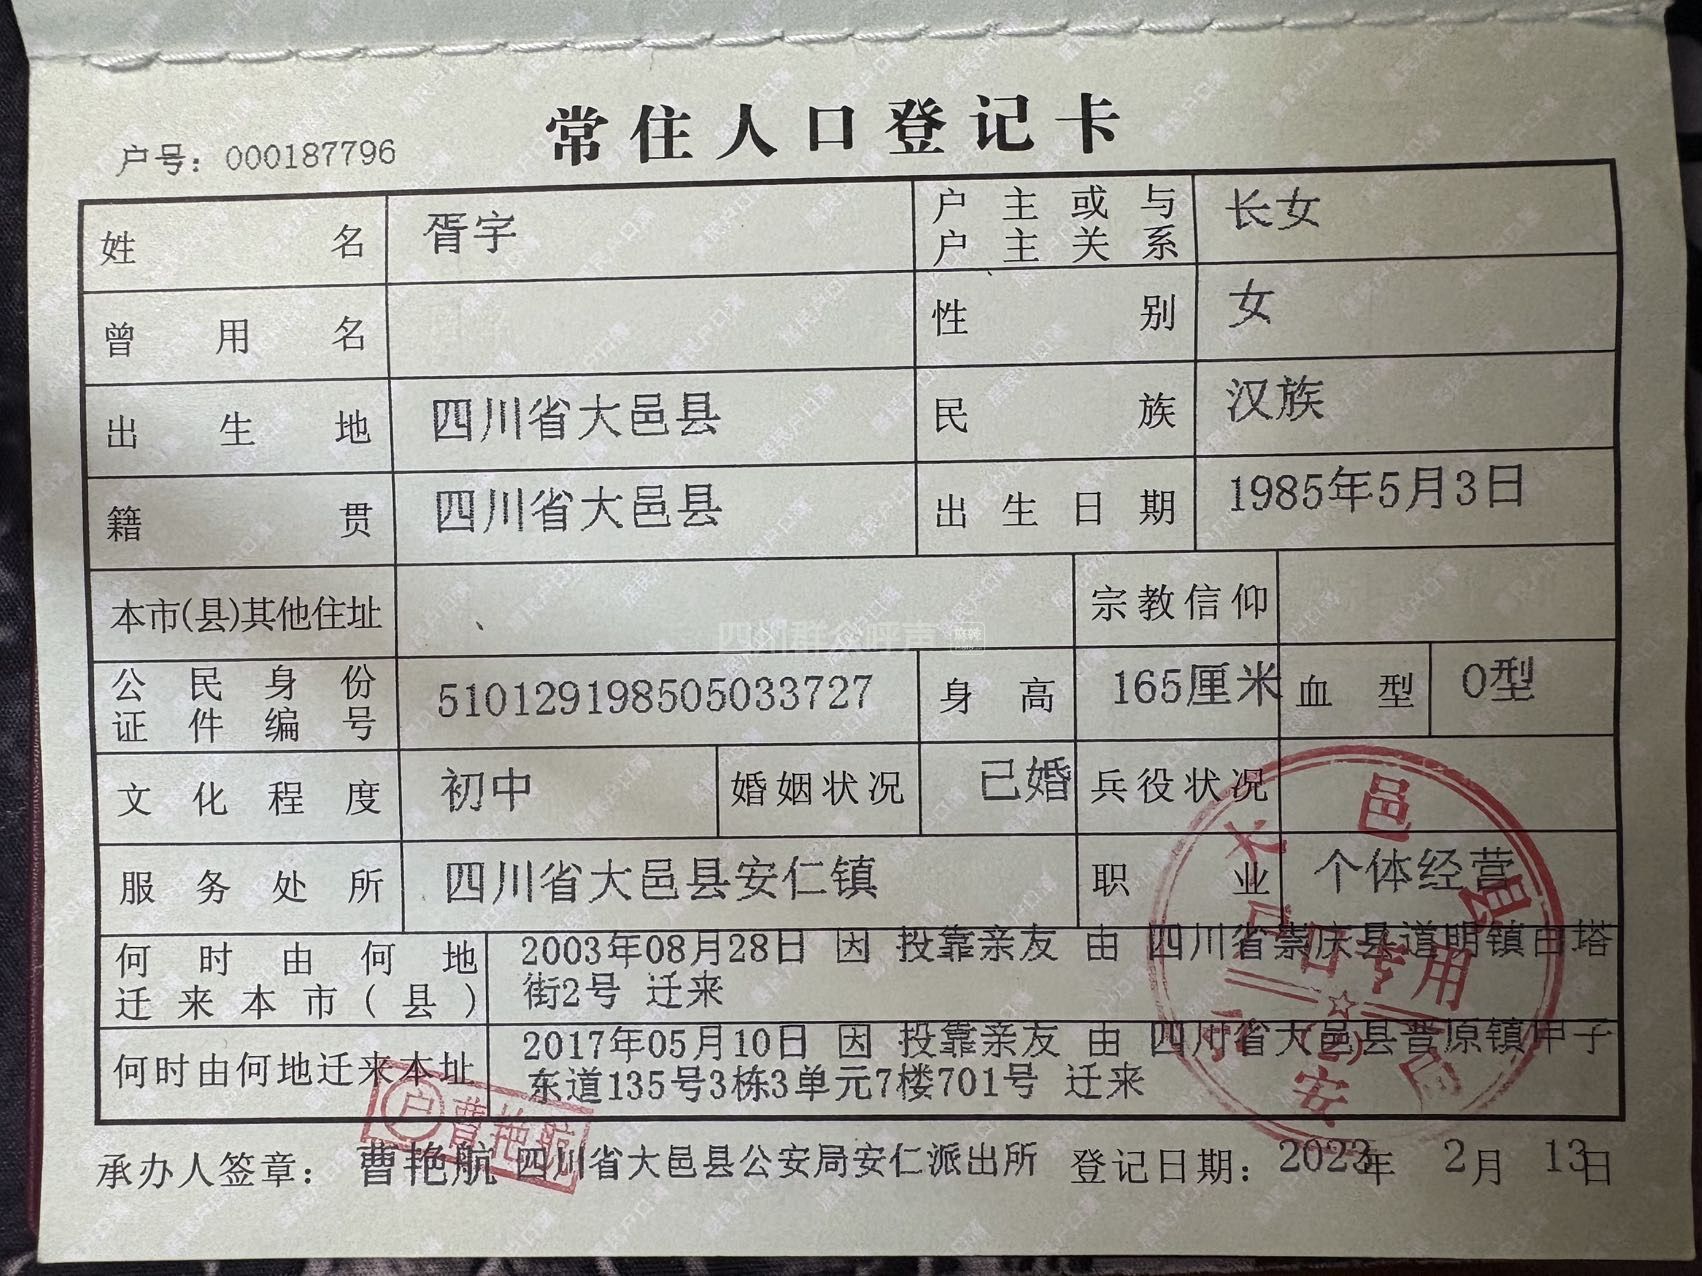 常住人口登记卡
户号：000187796
姓名 胥宇 户主或与户主关系 长女
曾用名 性别 女
出生地 四川省大邑县 民族 汉族
籍贯 四川省大邑县 出生日期 1985年5月3日
本市(县)其他住址 宗教信仰
公民身份证件编号 510129198505033727 身高 165厘米 血型 O型
文化程度 初中 婚姻状况 已婚 兵役状况
服务处所 四川省大邑县安仁镇 职业 个体经营
何时由何地迁来本市(县) 2003年08月28日 因 投靠亲友 由 四川省崇庆县道明镇白塔
街2号 迁来
何时由何地迁来本址 2017年05月10日 因 投靠亲友 由 四川省大邑县晋原镇甲子
东道135号3栋3单元7楼701号 迁来
承办人签章： 曹艳航 四川省大邑县公安局安仁派出所 登记日期： 2023年 2月 13日
户 曹艳航
大邑县公安局
户口专用
(2)
四川群众呼声